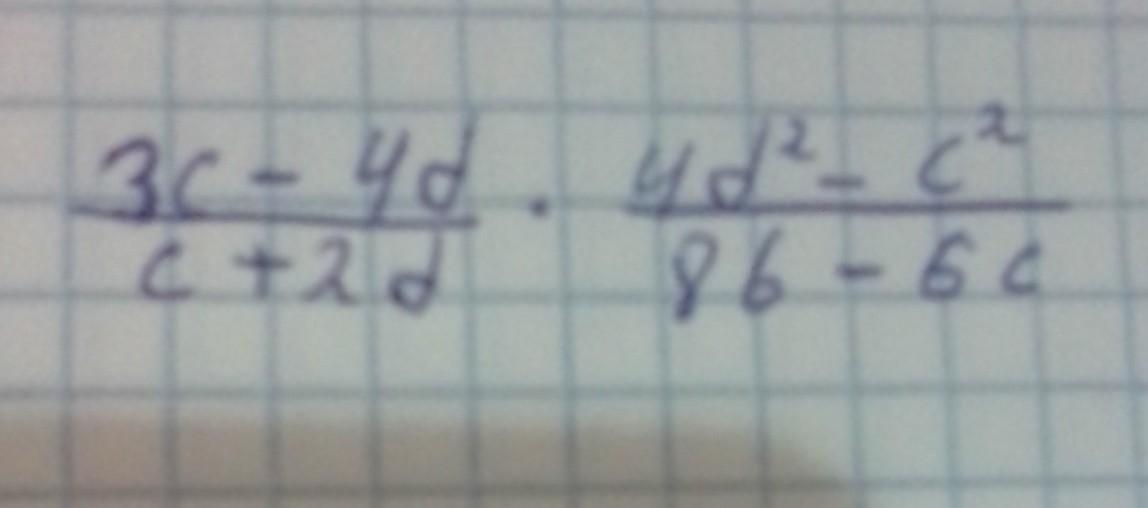 3c - 4d / c + 2d · 4d² - c² / 8b - 6c